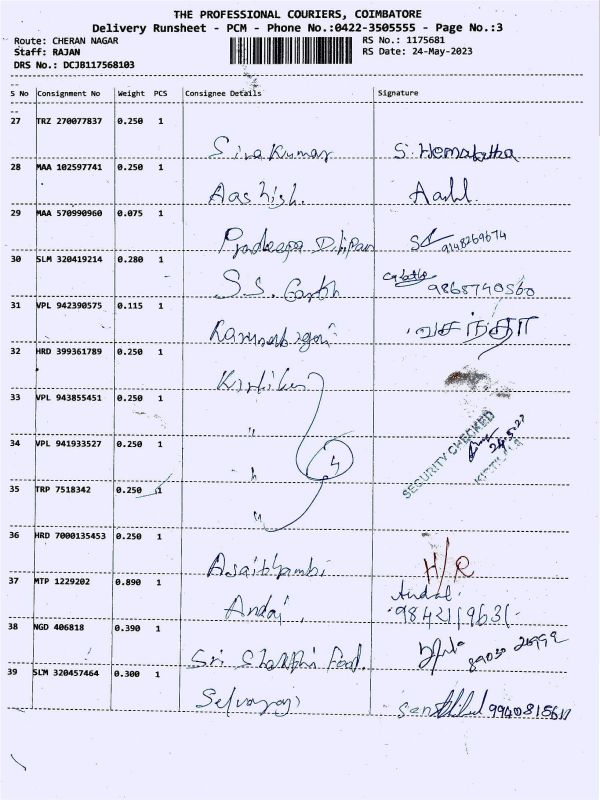 THE PROFESSIONAL COURIERS, COIMBATORE
Delivery Runsheet - PCM - Phone No.:0422-3505555 - Page No.:3
Route: CHERAN NAGAR RS No.: 1175681
Staff: RAJAN RS Date: 24-May-2023
DRS No.: DCJB117568103
S No Consignment No Weight PCS Consignee Details Signature
27 TRZ 270077837 0.250 1
Siva Kumar S. Hemalatha
28 MAA 102597741 0.250 1
Aashish.
29 MAA 570990960 0.075 1
Pradeepa 9148269674
30 SLM 320419214 0.280 1
S.S. 9868740560
31 VPL 942390575 0.115 1
வசந்தா
32 HRD 399361789 0.250 1
33 VPL 943855451 0.250 1
"
SECURITY CHECKED
34 VPL 941933527 0.250 1
"
35 TRP 7518342 0.250 1
"
36 HRD 7000135453 0.250 1
Asaithambi H/R
37 MTP 1229202 0.890 1
Andal
9842119631
38 NGD 406818 0.390 1
Sri Food.
39 SLM 320457464 0.300 1
Selvaraj 9940815617